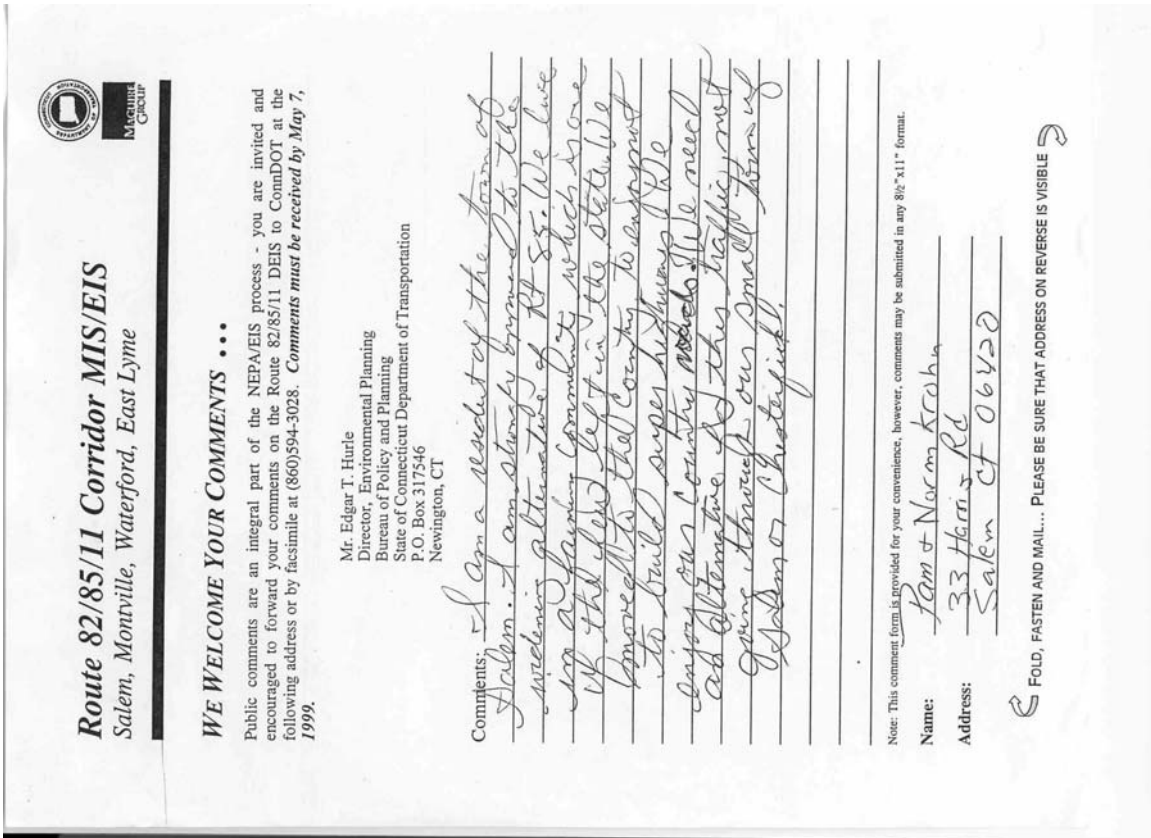 Route 82/85/11 Corridor MIS/EIS
Salem, Montville, Waterford, East Lyme
CONNECTICUT
DEPARTMENT OF TRANSPORTATION
MAGUIRE
GROUP
WE WELCOME YOUR COMMENTS ...
Public comments are an integral part of the NEPA/EIS process - you are invited and
encouraged to forward your comments on the Route 82/85/11 DEIS to ConnDOT at the
following address or by facsimile at (860)594-3028. Comments must be received by May 7,
1999.
Mr. Edgar T. Hurle
Director, Environmental Planning
Bureau of Policy and Planning
State of Connecticut Department of Transportation
P.O. Box 317546
Newington, CT
Comments: I am a resident of the town of
Salem. I am strongly opposed to the
widening alternative of Rt 85. We live
in a farming community which is one
of the few left in the state. We
moved to the country to enjoy not
to build super highways. We
enjoy our country roads. We need
an alternative for this traffic, not
going through our small towns of
Salem or Chesterfield.
Note: This comment form is provided for your convenience, however, comments may be submitted in any 8½"x11" format.
Name: Pam & Norm Krohn
Address: 33 Harris Rd
Salem Ct 06420
FOLD, FASTEN AND MAIL... PLEASE BE SURE THAT ADDRESS ON REVERSE IS VISIBLE